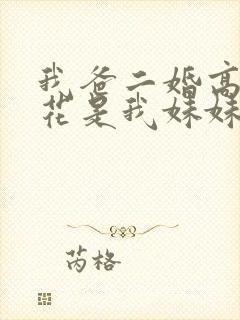 我爸二婚高
花是我妹妹
芮格